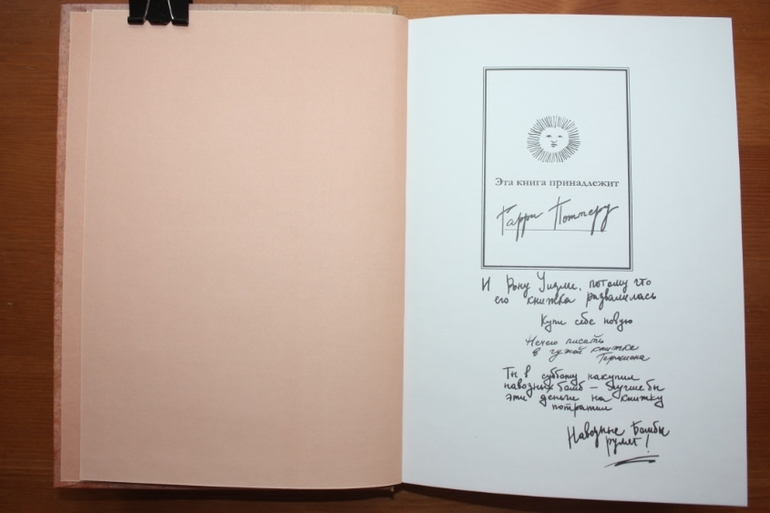 Эта книга принадлежит
Гарри Поттеру
И Рону Уизли, потому что
его книжка развалилась
Купи себе новую
Нечего писать
в чужой книжке
Гермиона
Ты в субботу накупил
навозных бомб — лучше бы
эти деньги на книжку
потратил
Навозные Бомбы
рулят!